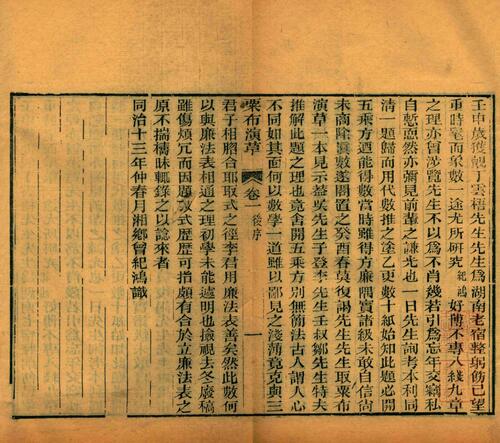 壬申歲獲觀丁雲梧先生先生爲湖南老宿整躬飭己望
重時髦而象數一途尤所硏究紀鴻好博不專入綫九章
之理亦曾涉覽先生不以爲不肖幾若引爲忘年交竊私
自慙恧然亦彌見前輩之謙光也一日先生詢考本利同
淸一題歸而用代數推之塗乙更數十紙始知此題必開
五乘方廼能得數當時雖得方廉隅實諸級未敢自信尙
未商除眞數遂閣置之癸酉春莫復謁先生先生取粟布
演草一本見示葢吳先生子登李先生壬叔鄒先生特夫
推解此題之理也竟舍開五乘方別無簡法古人謂人心
不同如其面何以數學一道雖以鄙見之淺薄竟克與三
粟布演草
卷一
後序
一
君子相脗合耶取式之徑李君用廉法表善矣然此數何
以與廉法表相通之理初學未能遽明也撿視去冬廢稿
雖傷煩冗而因題攷式歷歷可指頗有合於立廉法表之
原不揣檮昧輒錄之以諗來者
同治十三年仲春月湘鄉曾紀鴻識